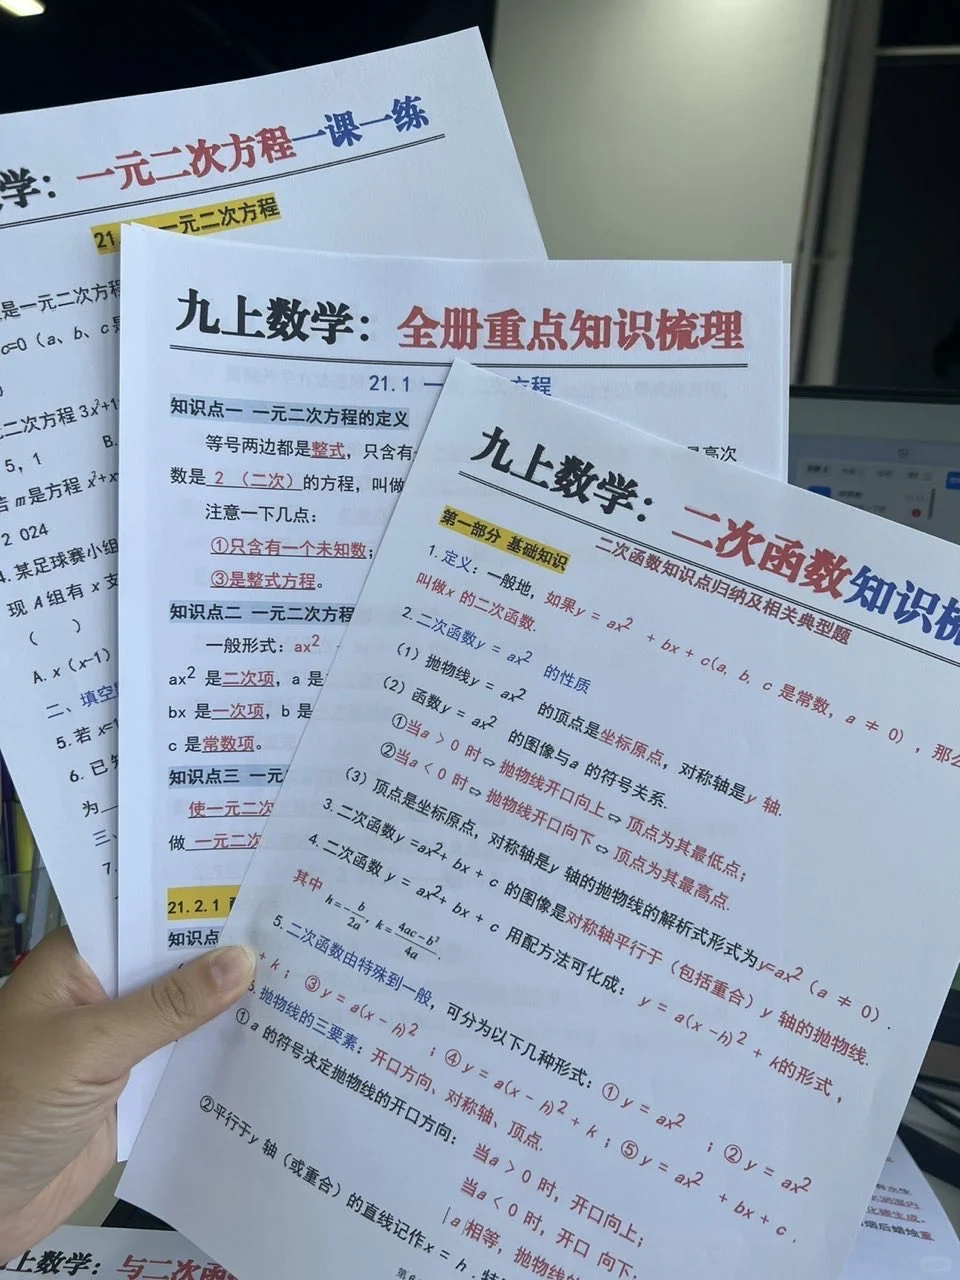 学：一元二次方程一课一练
21. 一元二次方程
是一元二次方程
c=0（a、b、c是
二次方程3x²+1
5，1 B.
若m是方程x²+x
2 024
4.某足球赛小组
现A组有x支
（ ）
A.x（x-1）
二、填空
5.若x=1
6.已知
为
三、
7.
九上数学：全册重点知识梳理
21.1 一 方程
知识点一 一元二次方程的定义
等号两边都是整式，只含有 最高次
数是 2 （二次）的方程，叫做
注意一下几点：
①只含有一个未知数；
③是整式方程。
知识点二 一元二次方程
一般形式：ax²
ax² 是二次项，a 是
bx 是一次项，b 是
c 是常数项。
知识点三 一元
使一元二次
做 一元二次
21.2.1
知识点
九上数学：二次函数知识梳
二次函数知识点归纳及相关典型题
第一部分 基础知识
1.定义：一般地，如果y=ax²+bx+c(a,b,c是常数，a≠0)，那么
叫做x的二次函数.
2.二次函数y=ax²的性质
（1）抛物线y=ax²的顶点是坐标原点，对称轴是y轴.
（2）函数y=ax²的图像与a的符号关系.
①当a>0时⇔抛物线开口向上⇔顶点为其最低点；
②当a<0时⇔抛物线开口向下⇔顶点为其最高点.
（3）顶点是坐标原点，对称轴是y轴的抛物线的解析式形式为y=ax²（a≠0）.
3.二次函数y=ax²+bx+c的图像是对称轴平行于（包括重合）y轴的抛物线.
4.二次函数y=ax²+bx+c用配方法可化成：y=a(x-h)²+k的形式，
其中
h=-b/2a，k=(4ac-b²)/4a.
5.二次函数由特殊到一般，可分为以下几种形式：①y=ax²；②y=ax²
+k；③y=a(x-h)²；④y=a(x-h)²+k；⑤y=ax²+bx+c.
抛物线的三要素：开口方向、对称轴、顶点.
①a的符号决定抛物线的开口方向：当a>0时，开口向上；
当a<0时，开口向下；
|a|相等，抛物线的
②平行于y轴（或重合）的直线记作x=h.
上数学：与二次函